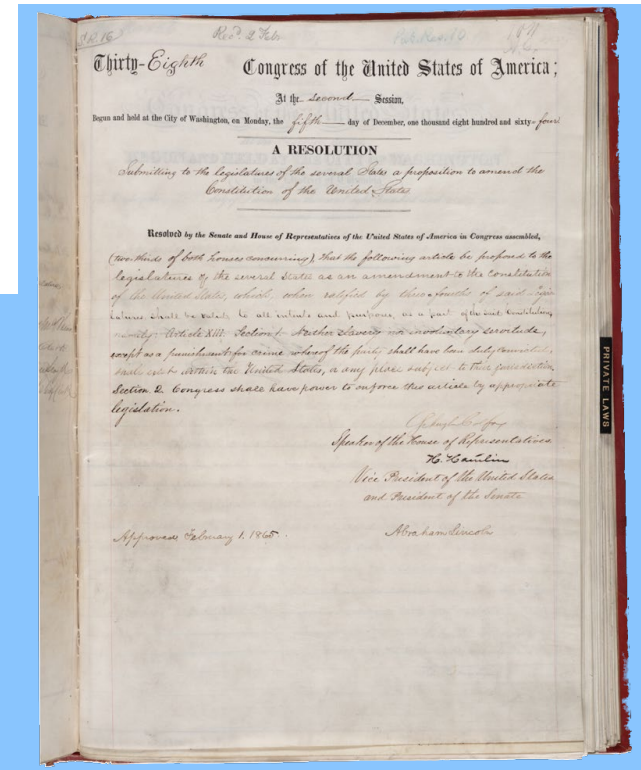 S.R. 16
Rec'd. 2 Feb.
Pub. Res. 10
Thirty-Eighth Congress of the United States of America;
At the second Session,
Begun and held at the City of Washington, on Monday, the fifth day of December, one thousand eight hundred and sixty-four
A RESOLUTION
Submitting to the legislatures of the several States a proposition to amend the
Constitution of the United States
Resolved by the Senate and House of Representatives of the United States of America in Congress assembled,
(two-thirds of both houses concurring), That the following article be proposed to the
legislatures of the several States as an amendment to the Constitution
of the United States, which, when ratified by three-fourths of said legis-
latures, shall be valid, to all intents and purposes, as a part of the said Constitution,
namely: Article XIII. Section 1. Neither slavery nor involuntary servitude,
except as a punishment for crime whereof the party shall have been duly convicted,
shall exist within the United States, or any place subject to their jurisdiction.
Section 2. Congress shall have power to enforce this article by appropriate
legislation.
Speaker of the House of Representatives
H. Hamlin
Vice President of the United States
and President of the Senate
Approved, February 1, 1865.
Abraham Lincoln
PRIVATE LAWS